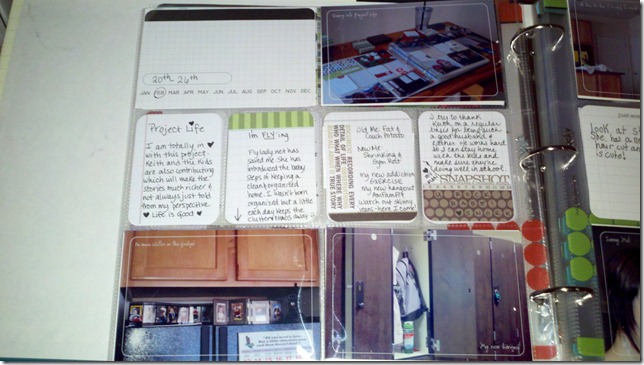 20th 26th
JAN FEB MAR APR MAY JUN JUL AUG SEP OCT NOV DEC
Project Life
I am totally in
with this project.
Keith and the kids
are also contributing
which will make the
stories much richer &
not always just told
from my perspective.
LIFE IS GOOD
I'm FLYing
Flylady.net has
saved me. She has
introduced the baby
steps of keeping a
clean & organized
home. I wasn't born
organized but a little
each day keeps the
clutter & chaos away
Old Me: Fat &
Couch Potato
New Me:
Shrinking &
Gym Rat
my new addiction
- EXERCISE
my new hangout
Watch out skinny
jeans - here I come
RECORDING EVERY
DETAIL OF LIFE
WHO WHAT WHEN WHERE WHY
TRUE STORY
I try to thank
Keith on a regular
basis for being such
a good husband &
father. He works hard
so I can stay home
with the kids and
make sure they're
doing well in school.
SNAPSHOT
Look, at
She has a
hair cut
is cute!
No more clutter on the fridge!
My new hangout